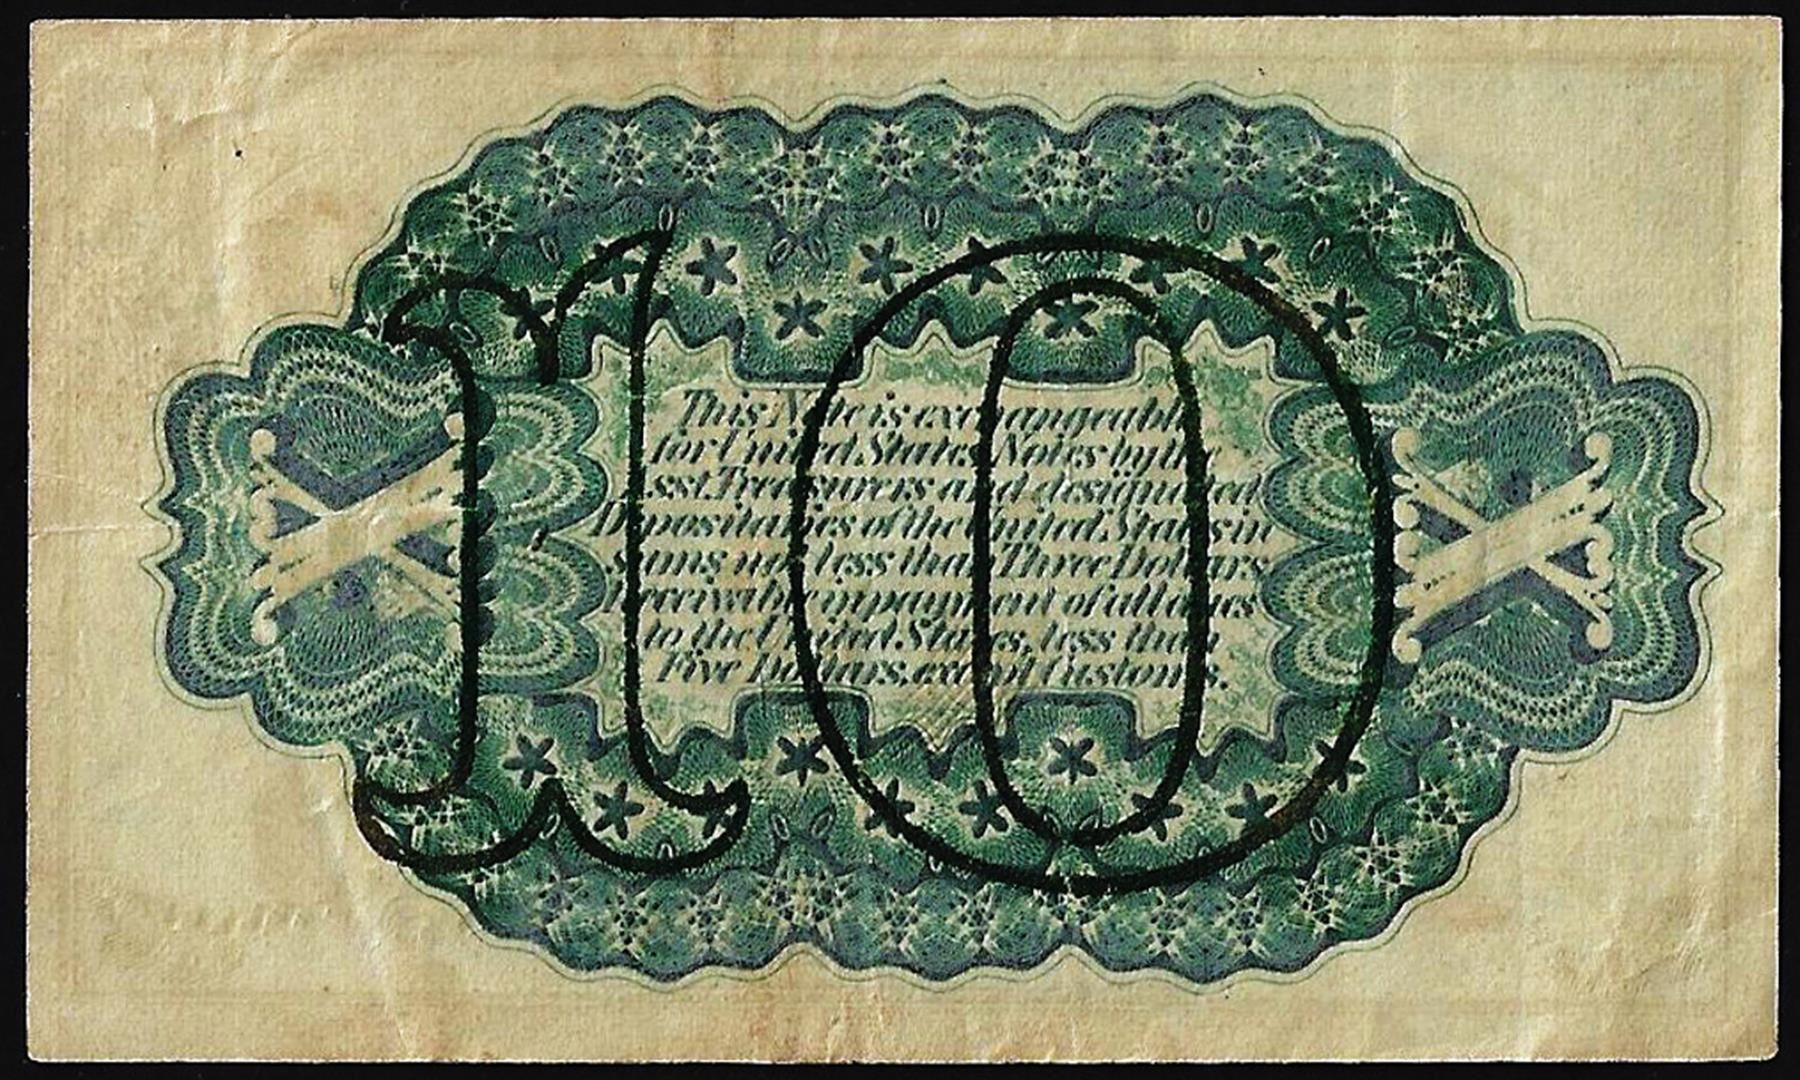 This Note is exchangeable
for United States Notes by the
Asst. Treasurers and designated
Depositaries of the United States in
sums not less than Three Dollars
Receivable in payment of all dues
to the United States, less than
Five Dollars, except Customs.
10
X X